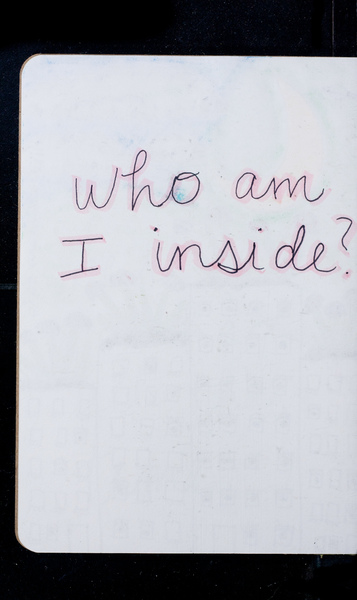 who am
I inside?